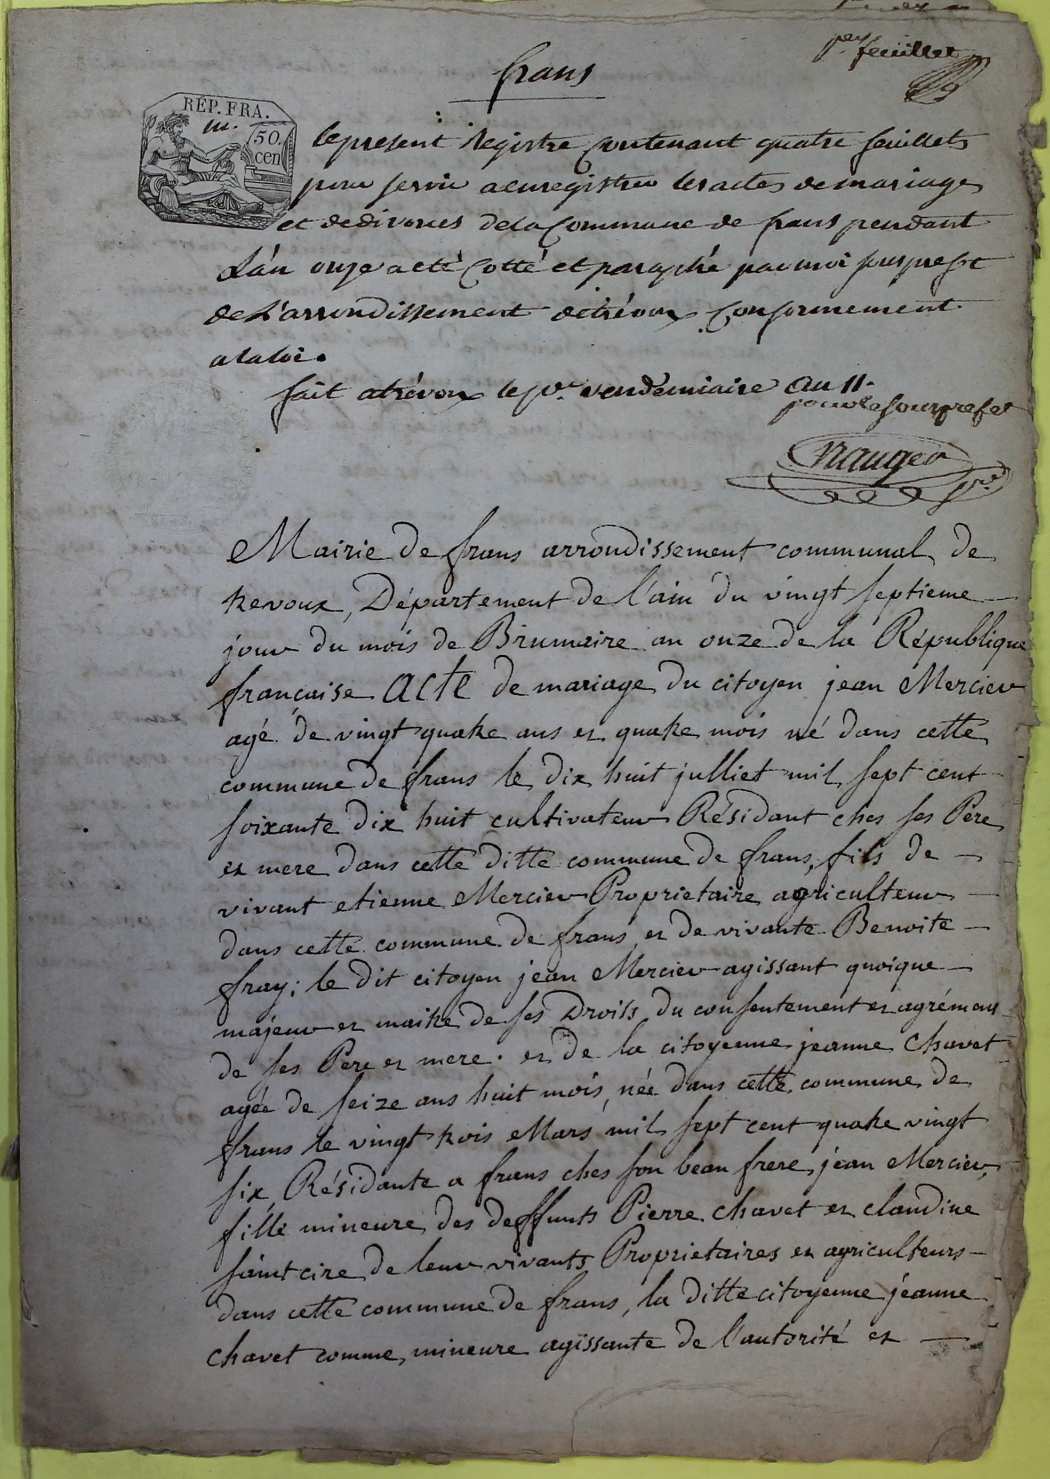 per feuillet
frans
REP. FRA.
50.
cen
le present Registre Contenant quatre feuillets
pour servir a enregistrer les actes de mariage
et de divorces de la Commune de frans pendant
L'an onze a eté Cotté et paraphé par moi sousprefet
de L'arrondissement de trévoux Conformement
a la loi.
fait a trévoux le pr. vendemiaire an 11.
pour le sousprefet
Mairie de frans arrondissement communal de
trevoux, Département de l'ain du vingt septieme
jour du mois de Brumaire an onze de la République
française Acte de mariage du citoyen jean Mercier
agé de vingt quatre ans et quatre mois né dans cette
commune de frans le dix huit julliet mil sept cent
soixante dix huit cultivateur Résidant ches ses Pere
et mere dans cette ditte commune de frans, fils de
vivant etienne Mercier Proprietaire agriculteur
dans cette commune de frans et de vivante Benoite
fray; le dit citoyen jean Mercier agissant quoique
majeur et maitre de ses Droits, du consentement et agrément
de ses Pere et mere. et de la citoyenne jeanne Chavet
agée de seize ans huit mois, née dans cette commune de
frans le vingt trois Mars mil sept cent quatre vingt
six, Résidante a frans ches son beau frere jean Mercier,
fille mineure des deffunts Pierre chavet et claudine
saint cire de leur vivants Proprietaires et agriculteurs
dans cette commune de frans, la ditte citoyenne jéanne
chavet comme mineure agissante de l'autorité et